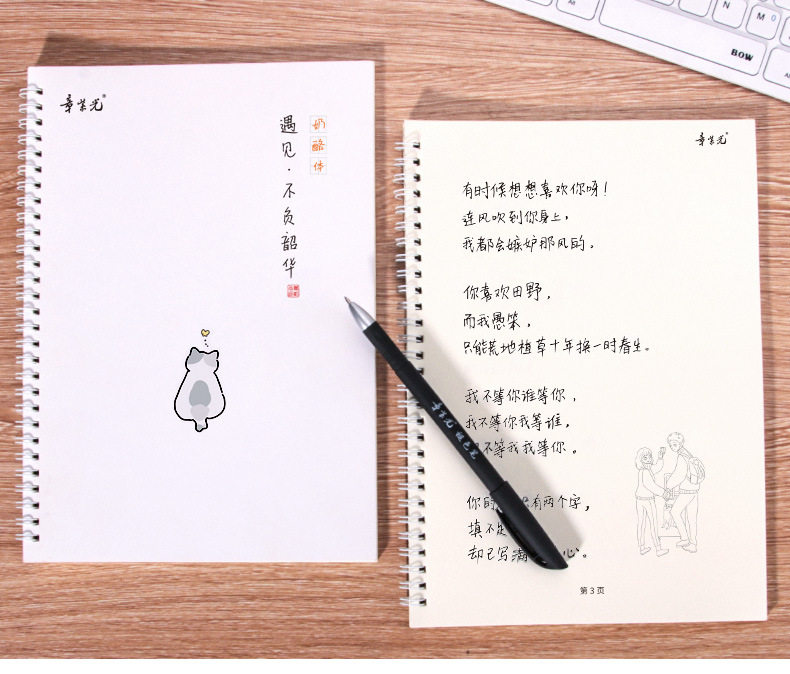 章紫光®
奶酪体
遇见·不负韶华
章紫光®
有时候想想喜欢你呀！
连风吹到你身上，
我都会嫉妒那风的。
你喜欢田野，
而我愚笨，
只能荒地植草十年换一时春生。
我不等你谁等你，
我不等你我等谁，
不等我我等你。
你的 有两个字，
填不
却已写满 心。
第3页
章紫光
BOW
N
M
Alt